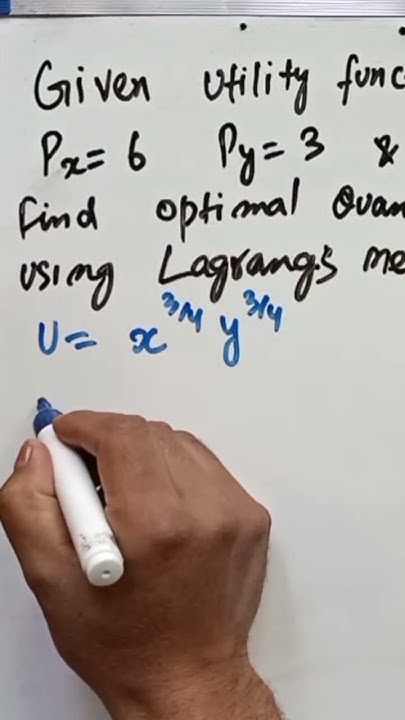 Given utility func
Px = 6 Py = 3 &
Find optimal Quan
using Lagrang's me
U = x^3/4 y^3/4